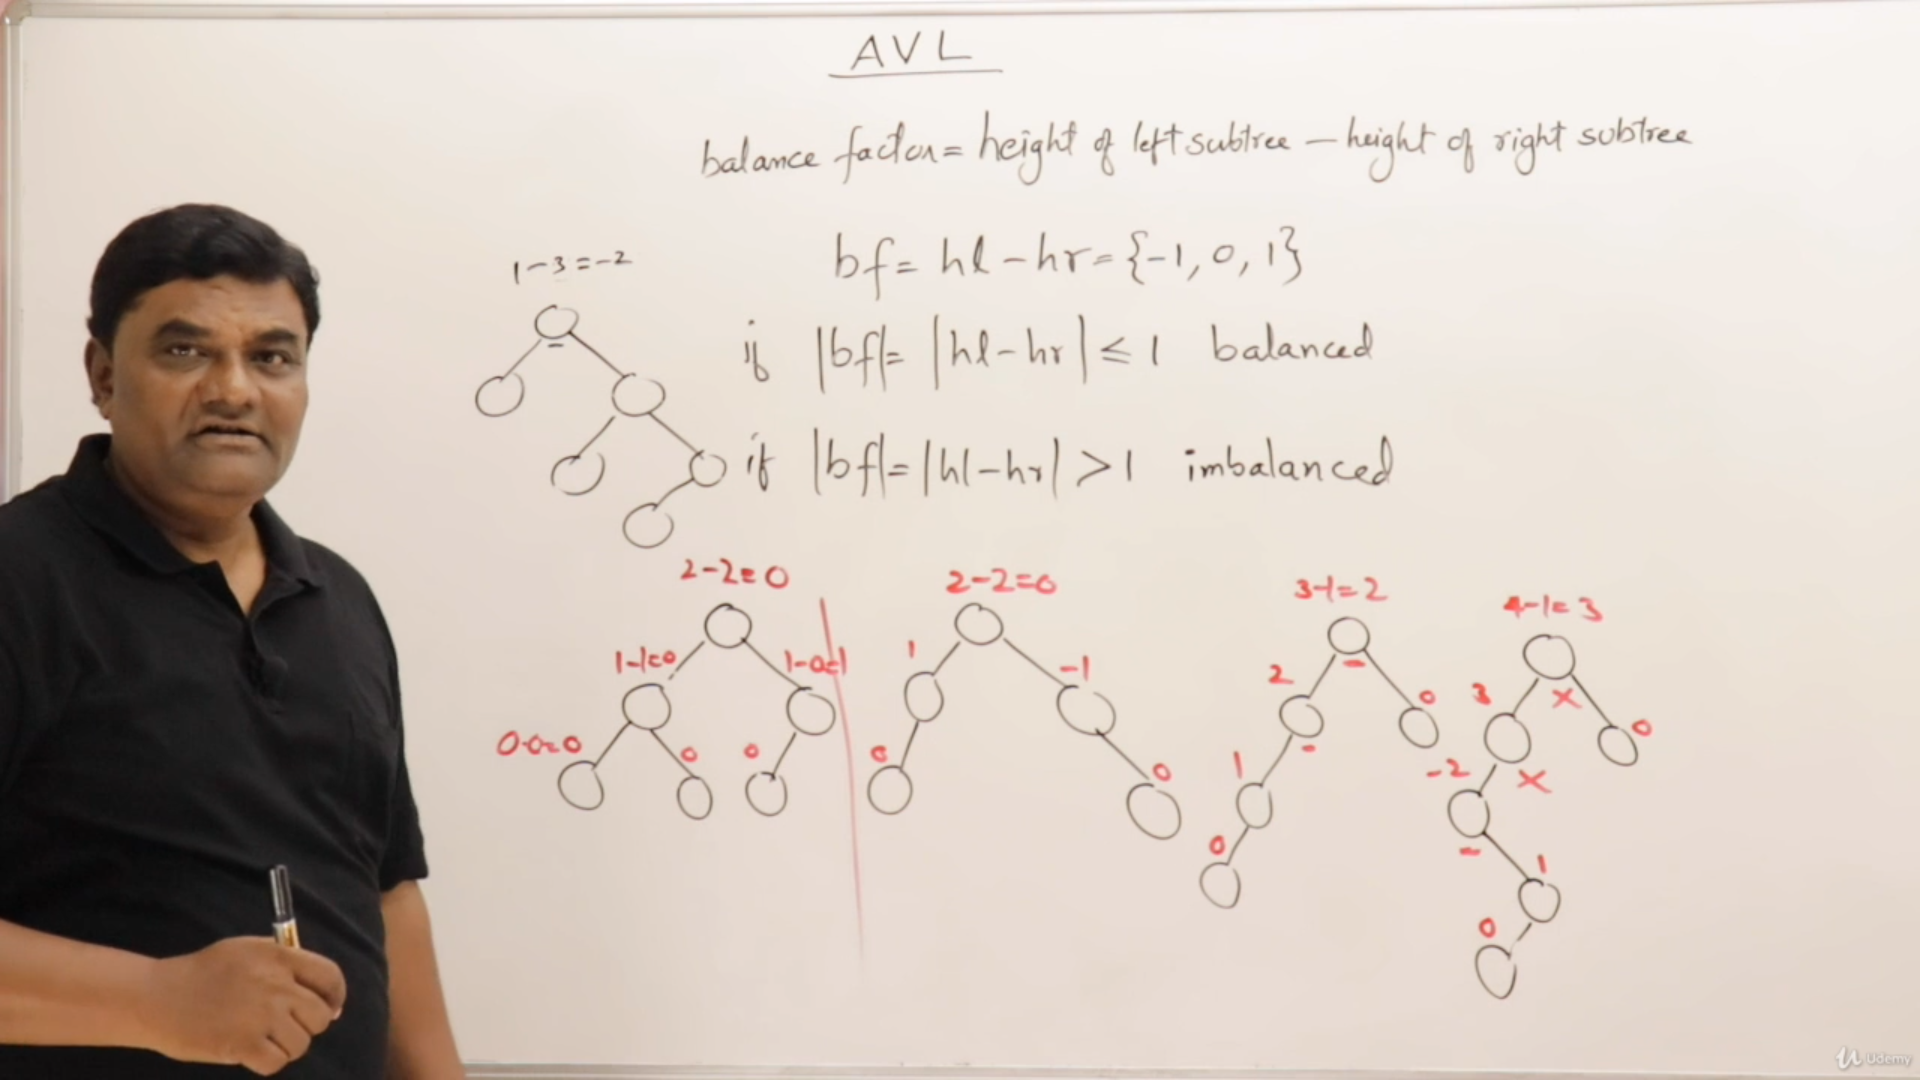 AVL
balance factor = height of left subtree – height of right subtree
bf = hl – hr = {-1, 0, 1}
1-3=-2
if |bf| = |hl-hr| ≤ 1 balanced
if |bf| = |hl-hr| > 1 imbalanced
2-2=0
2-2=0
3-1=2
4-1=3
1-1=0
1-0=1
1
-1
2
0
3
0
0-0=0
0
0
0
0
1
-2
x
x
0
1
0
Udemy